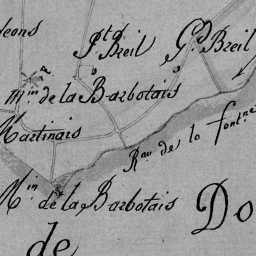 eons
Pt. Breil
Gd. Breil
min. de la Barbotais
Martinais
Rau de la fontne
Min. de la Barbotais
Do
de